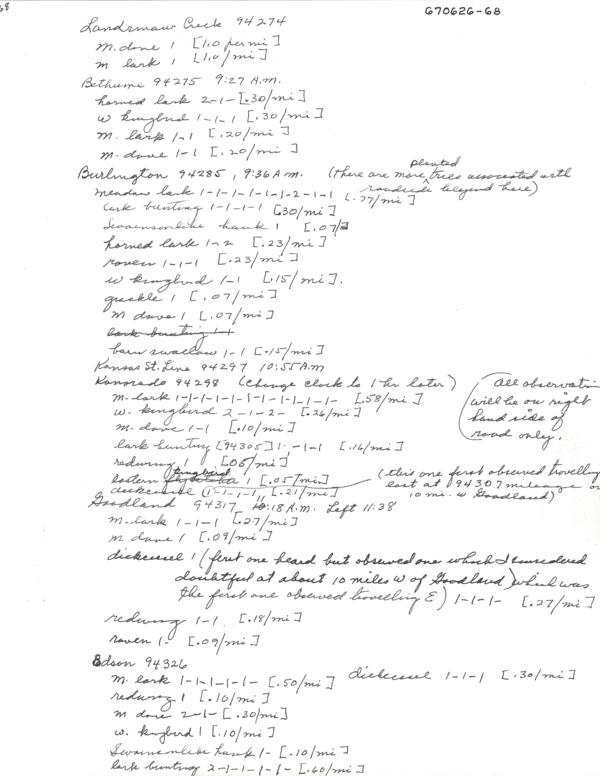 68
670626-68
Landsman Creek 94274
m. dove 1 [1.0 per mi]
m lark 1 [1.0/mi]
Bethune 94275 9:27 A.M.
horned lark 2-1- [.30/mi]
w kingbird 1-1-1 [.30/mi]
m. lark 1-1 [.20/mi]
m. dove 1-1 [.20/mi]
Burlington 94285, 9:36 A.M. (there are more planted trees associated with
meadow lark 1-1-1-1-1-1-2-1-1 [.77/mi] roadside beyond here)
lark bunting 1-1-1-1 [.30/mi]
Swainsonlike hawk 1 [.07/
horned lark 1-2 [.23/mi]
raven 1-1-1 [.23/mi]
w kingbird 1-1 [.15/mi].
grackle 1 [.07/mi]
m dove 1 [.07/mi]
lark bunting 1-1
barn swallow 1-1 [.15/mi]
Kansas St. Line 94297 10:55 A.M
Kanorado 94298 (change clock to 1 hr later)
All observation will be on right hand side of road only.
m-lark 1-1-1-1-1-1-1-1-1-1- [.58/mi]
w. kingbird 2-1-2- [.26/mi]
m-dove 1-1 [.10/mi]
lark bunting [94305] 1-1-1 [.16/mi]
redwing 1 [.05/mi]
eastern kingbird 1 [.05/mi]
dickcissel (1-1-1-1, [.21/mi] (this one first observed travelling east at 94307 mileage or 10 mi. W Goodland)
Goodland 94317 :18 A.M. Left 11:38
m-lark 1-1-1 [.27/mi]
m dove 1 [.09/mi]
dickcissel 1 (first one heard but observed one which I considered
doubtful at about 10 miles W of Goodland) which was
the first one observed travelling E) 1-1-1- [.27/mi]
redwing 1-1 [.18/mi]
raven 1- [.09/mi]
Edson 94326
m. lark 1-1-1-1-1- [.50/mi] dickcissel 1-1-1 [.30/mi]
redwing 1 [.10/mi]
m dove 2-1- [.30/mi]
w. kingbird 1 [.10/mi]
Swainsonlike hawk 1- [.10/mi]
lark bunting 2-1-1-1-1- [.60/mi]